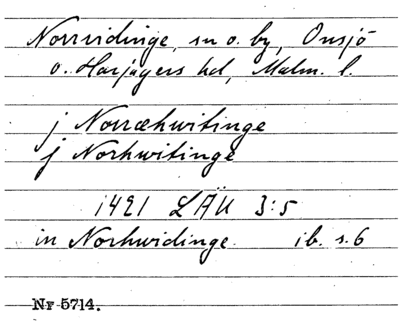 Norrvidinge, sn o. by, Onsjö
o. Harjagers hd, Malm. l.
j Norræhwitinge
j Norhwitinge
1421 LÄU 3:5
in Norhwidinge ib. s. 6
Nr 5714.